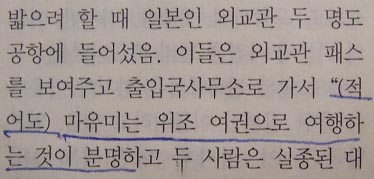 밟으려 할 때 일본인 외교관 두 명도
공항에 들어섰음. 이들은 외교관 패스
를 보여주고 출입국사무소로 가서 “(적
어도) 마유미는 위조 여권으로 여행하
는 것이 분명하고 두 사람은 실종된 대